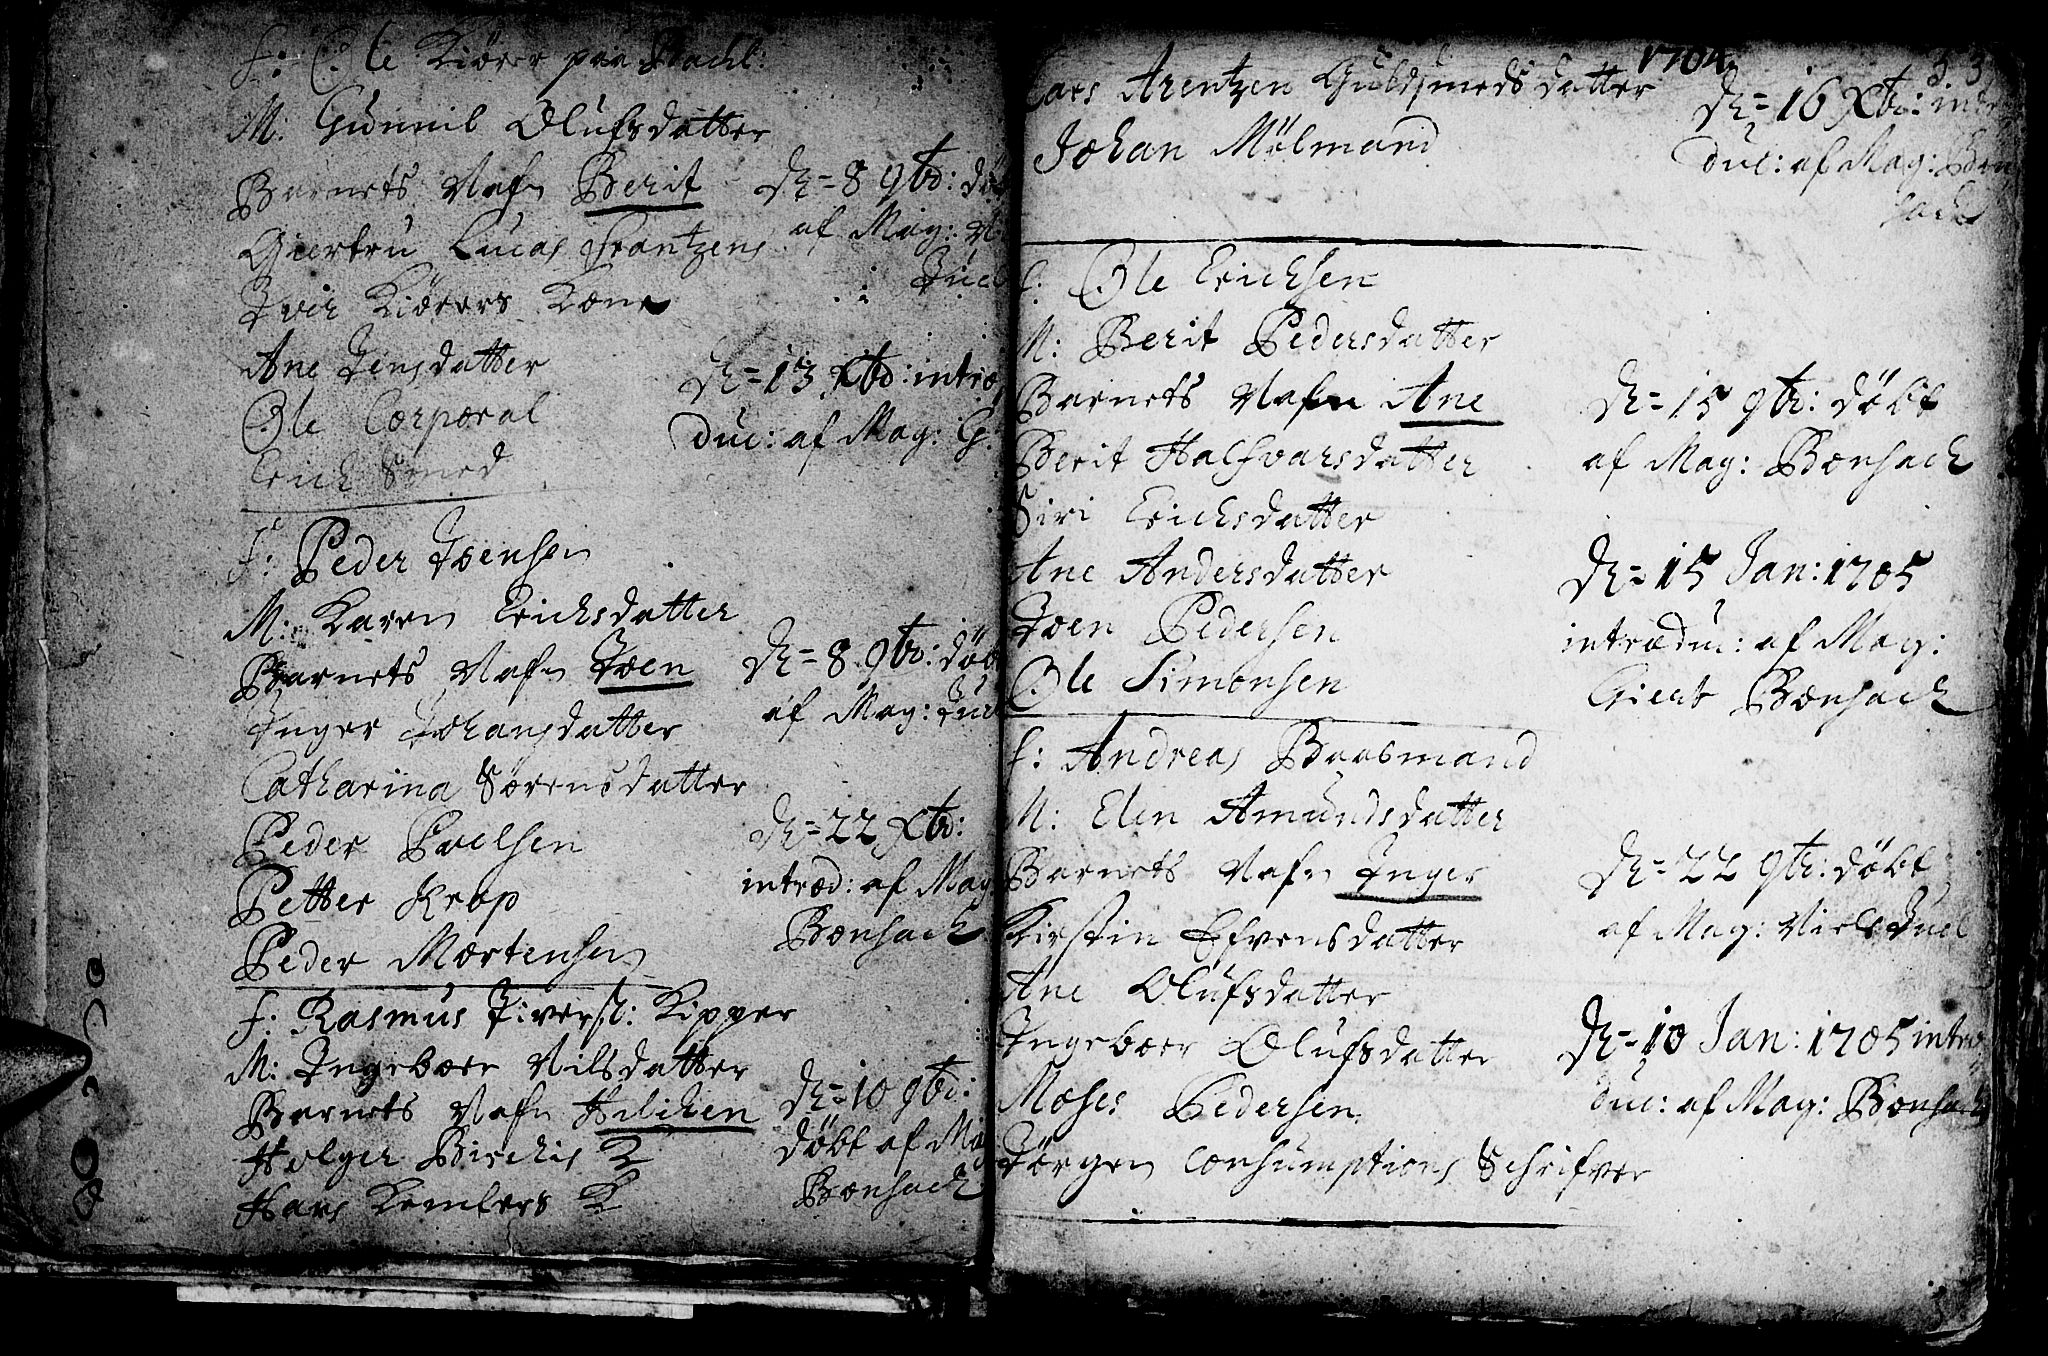 F: Ole Kiører paa Bachl:
M: Gunnil Olufsdatter
Barnets Nafn Berit
Giertru Lucas Frantzens
Iver Kiørers Kone
Ane Jensdatter
Ole Corporal
Erich Smed
D= 8 9br: døb
af Mag: N
Juel
D= 13 Xbr: intro
duc: af Mag: G:
F: Peder Joensen
M: Karen Erichsdatter
Barnets Nafn Joen
Inger Johansdatter
Catharina Sørensdatter
Peder Poelsen
Petter Krop
Peder Mortensen
D= 8 9br: døb
af Mag: Juel
D= 22 Xbr:
introd: af Mag
Bonsach
F: Rasmus Iversl: Kipper
M: Ingeboer Nilsdatter
Barnets Nafn Hilichen
Holger Bischis
Hans Kemlers K
D= 10 9br:
døbt af Mag
Bonsach
1704
33
Lars Arentzen Guldsmeds datter
Johan Mølmand
D= 16 Xbr: intro
duc: af Mag: Bon
sach
F: Ole Erichsen
M: Berit Pedersdatter
Barnets Nafn Ane
Berit Halfvarsdatter
Siri Erichsdatter
Ane Andersdatter
Joen Pedersen
Ole Simonsen
D= 15 9br: døbt
af Mag: Bonsach
D= 15 Jan: 1705
introduc: af Mag:
Giert Bonsach
F: Andreas Baasmand
M: Elen Amundsdatter
Barnets Nafn Inger
Kirstin Efvensdatter
Ane Olufsdatter
Ingeboer Olufsdatter
Moses Pedersen
Jørgen Consumptions Schrifver
D= 22 9br: døbt
af Mag: Niels Juel
D= 10 Jan: 1705 intro
duc: af Mag: Bonsach